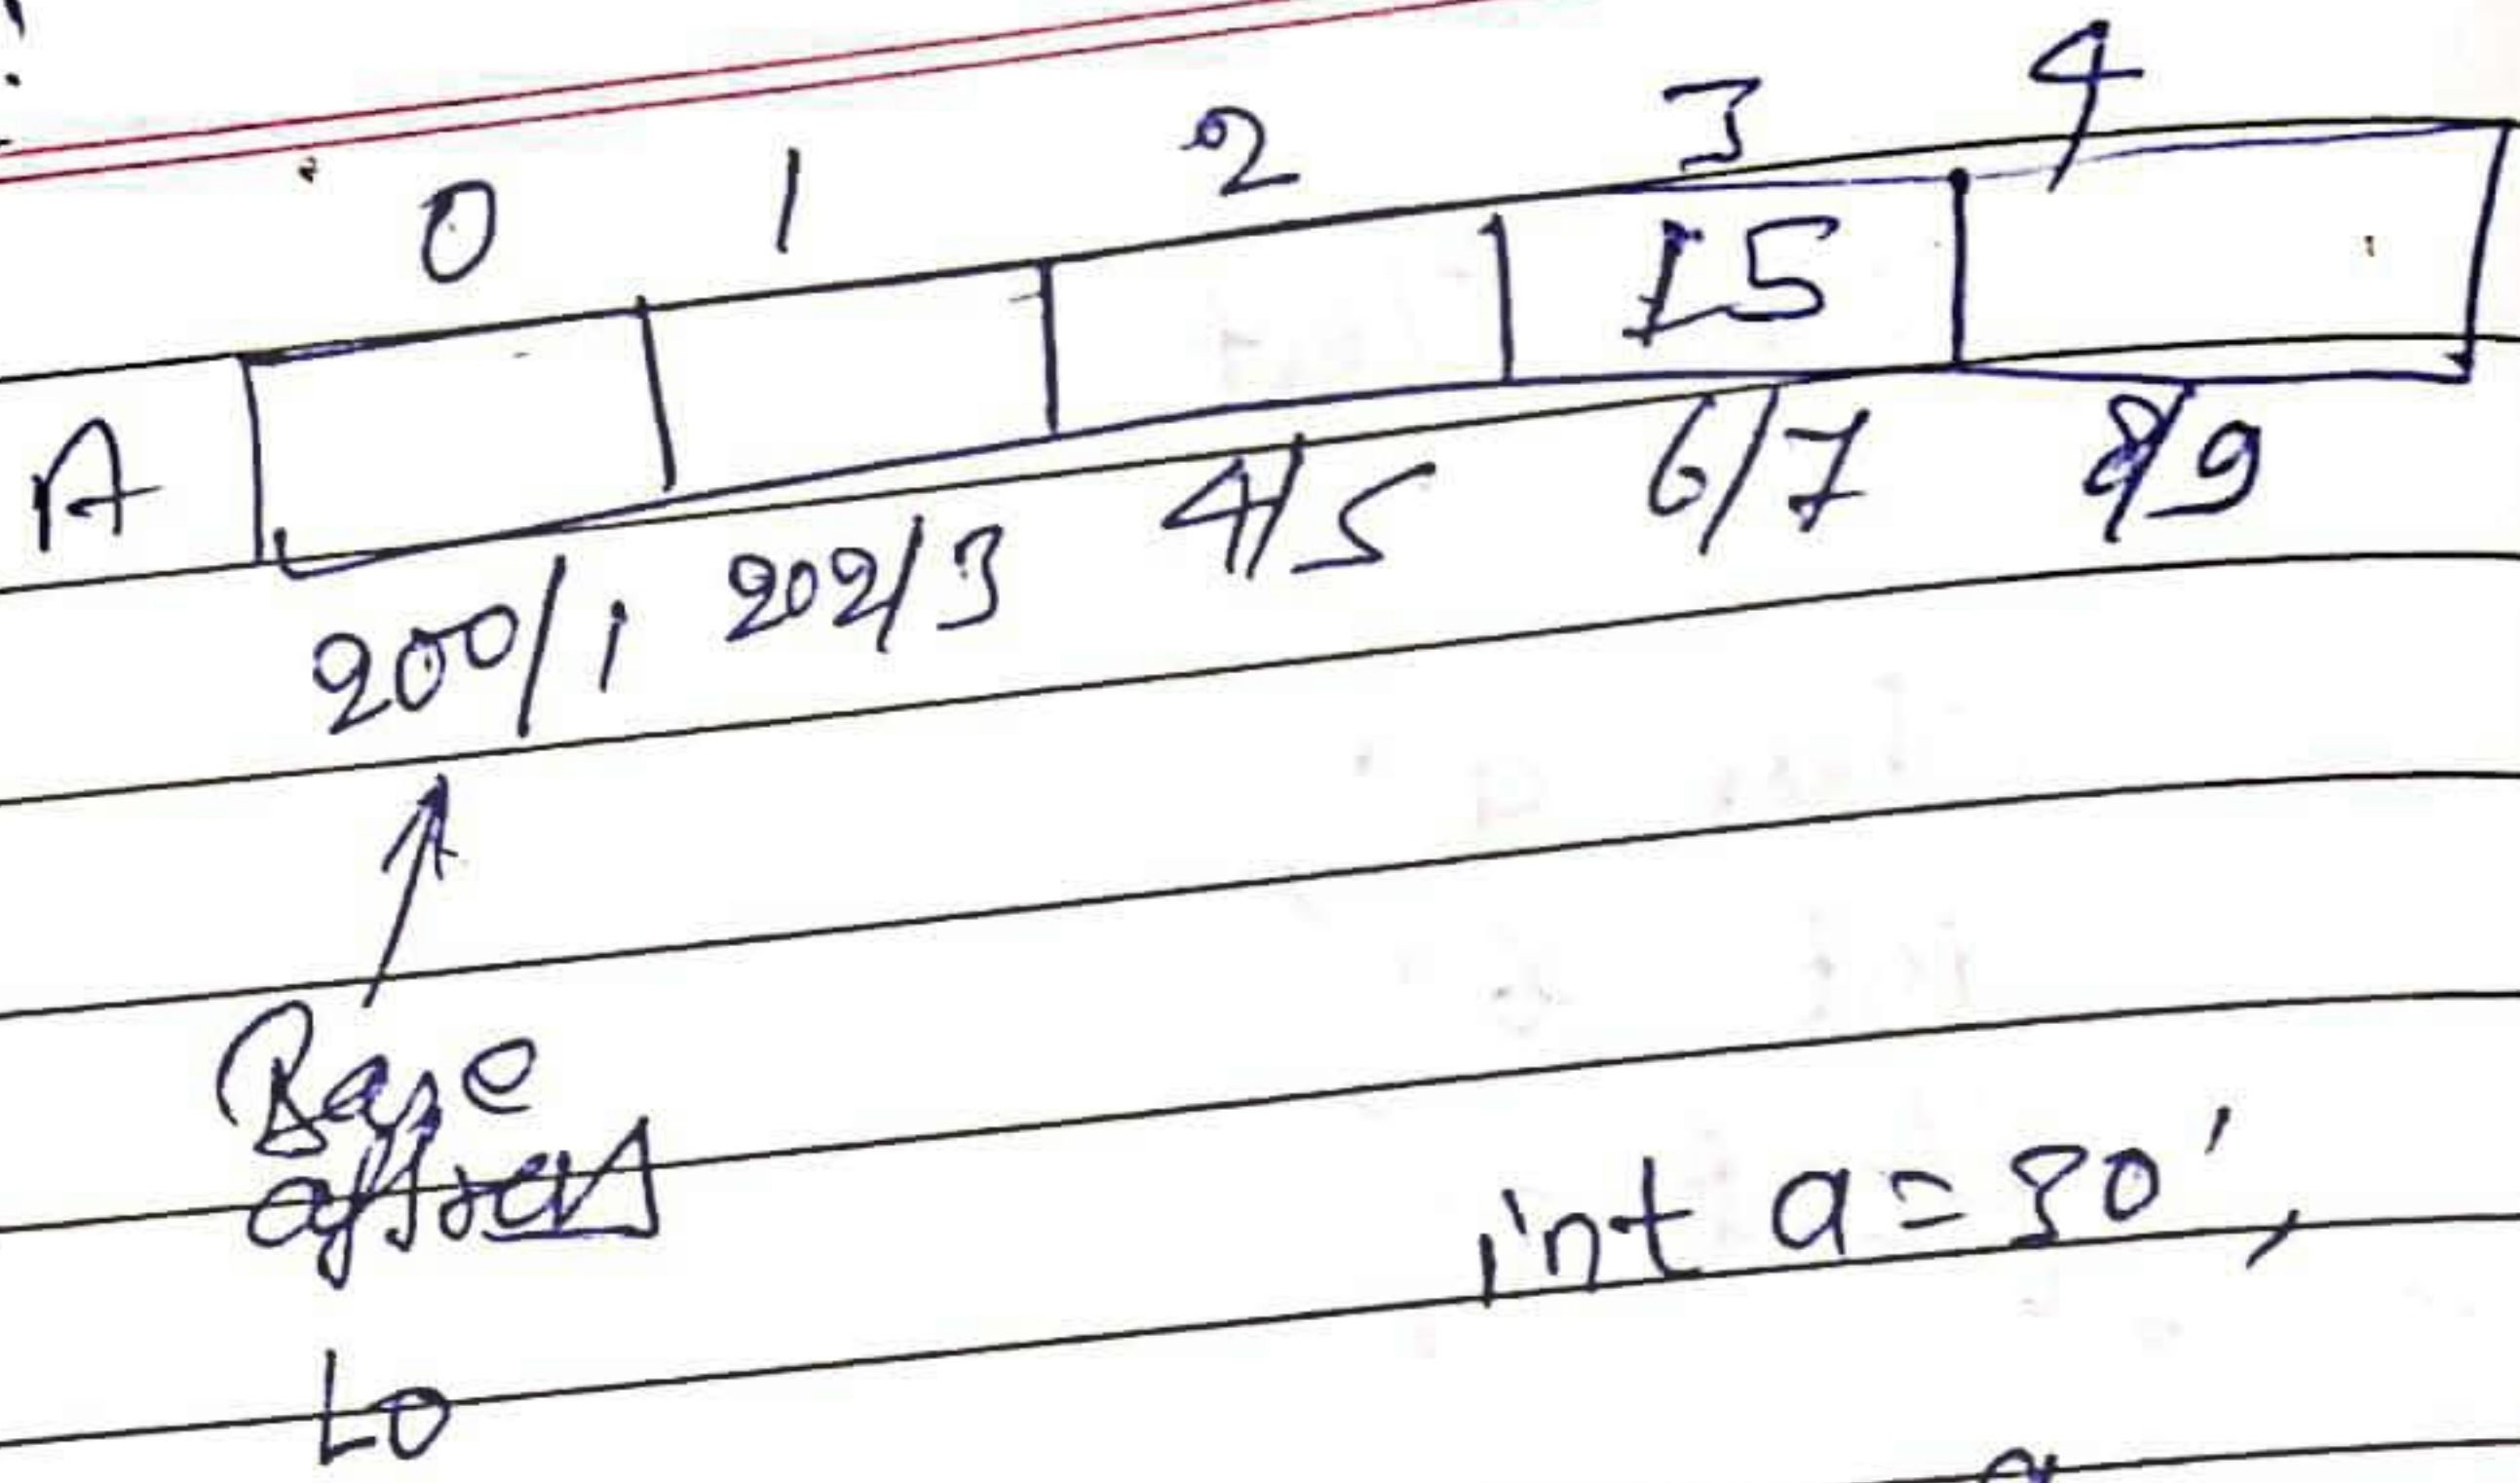 0 1 2 3 4
A 15
200/1 202/3 4/5 6/7 8/9
Base
address
int a = 30;
L0